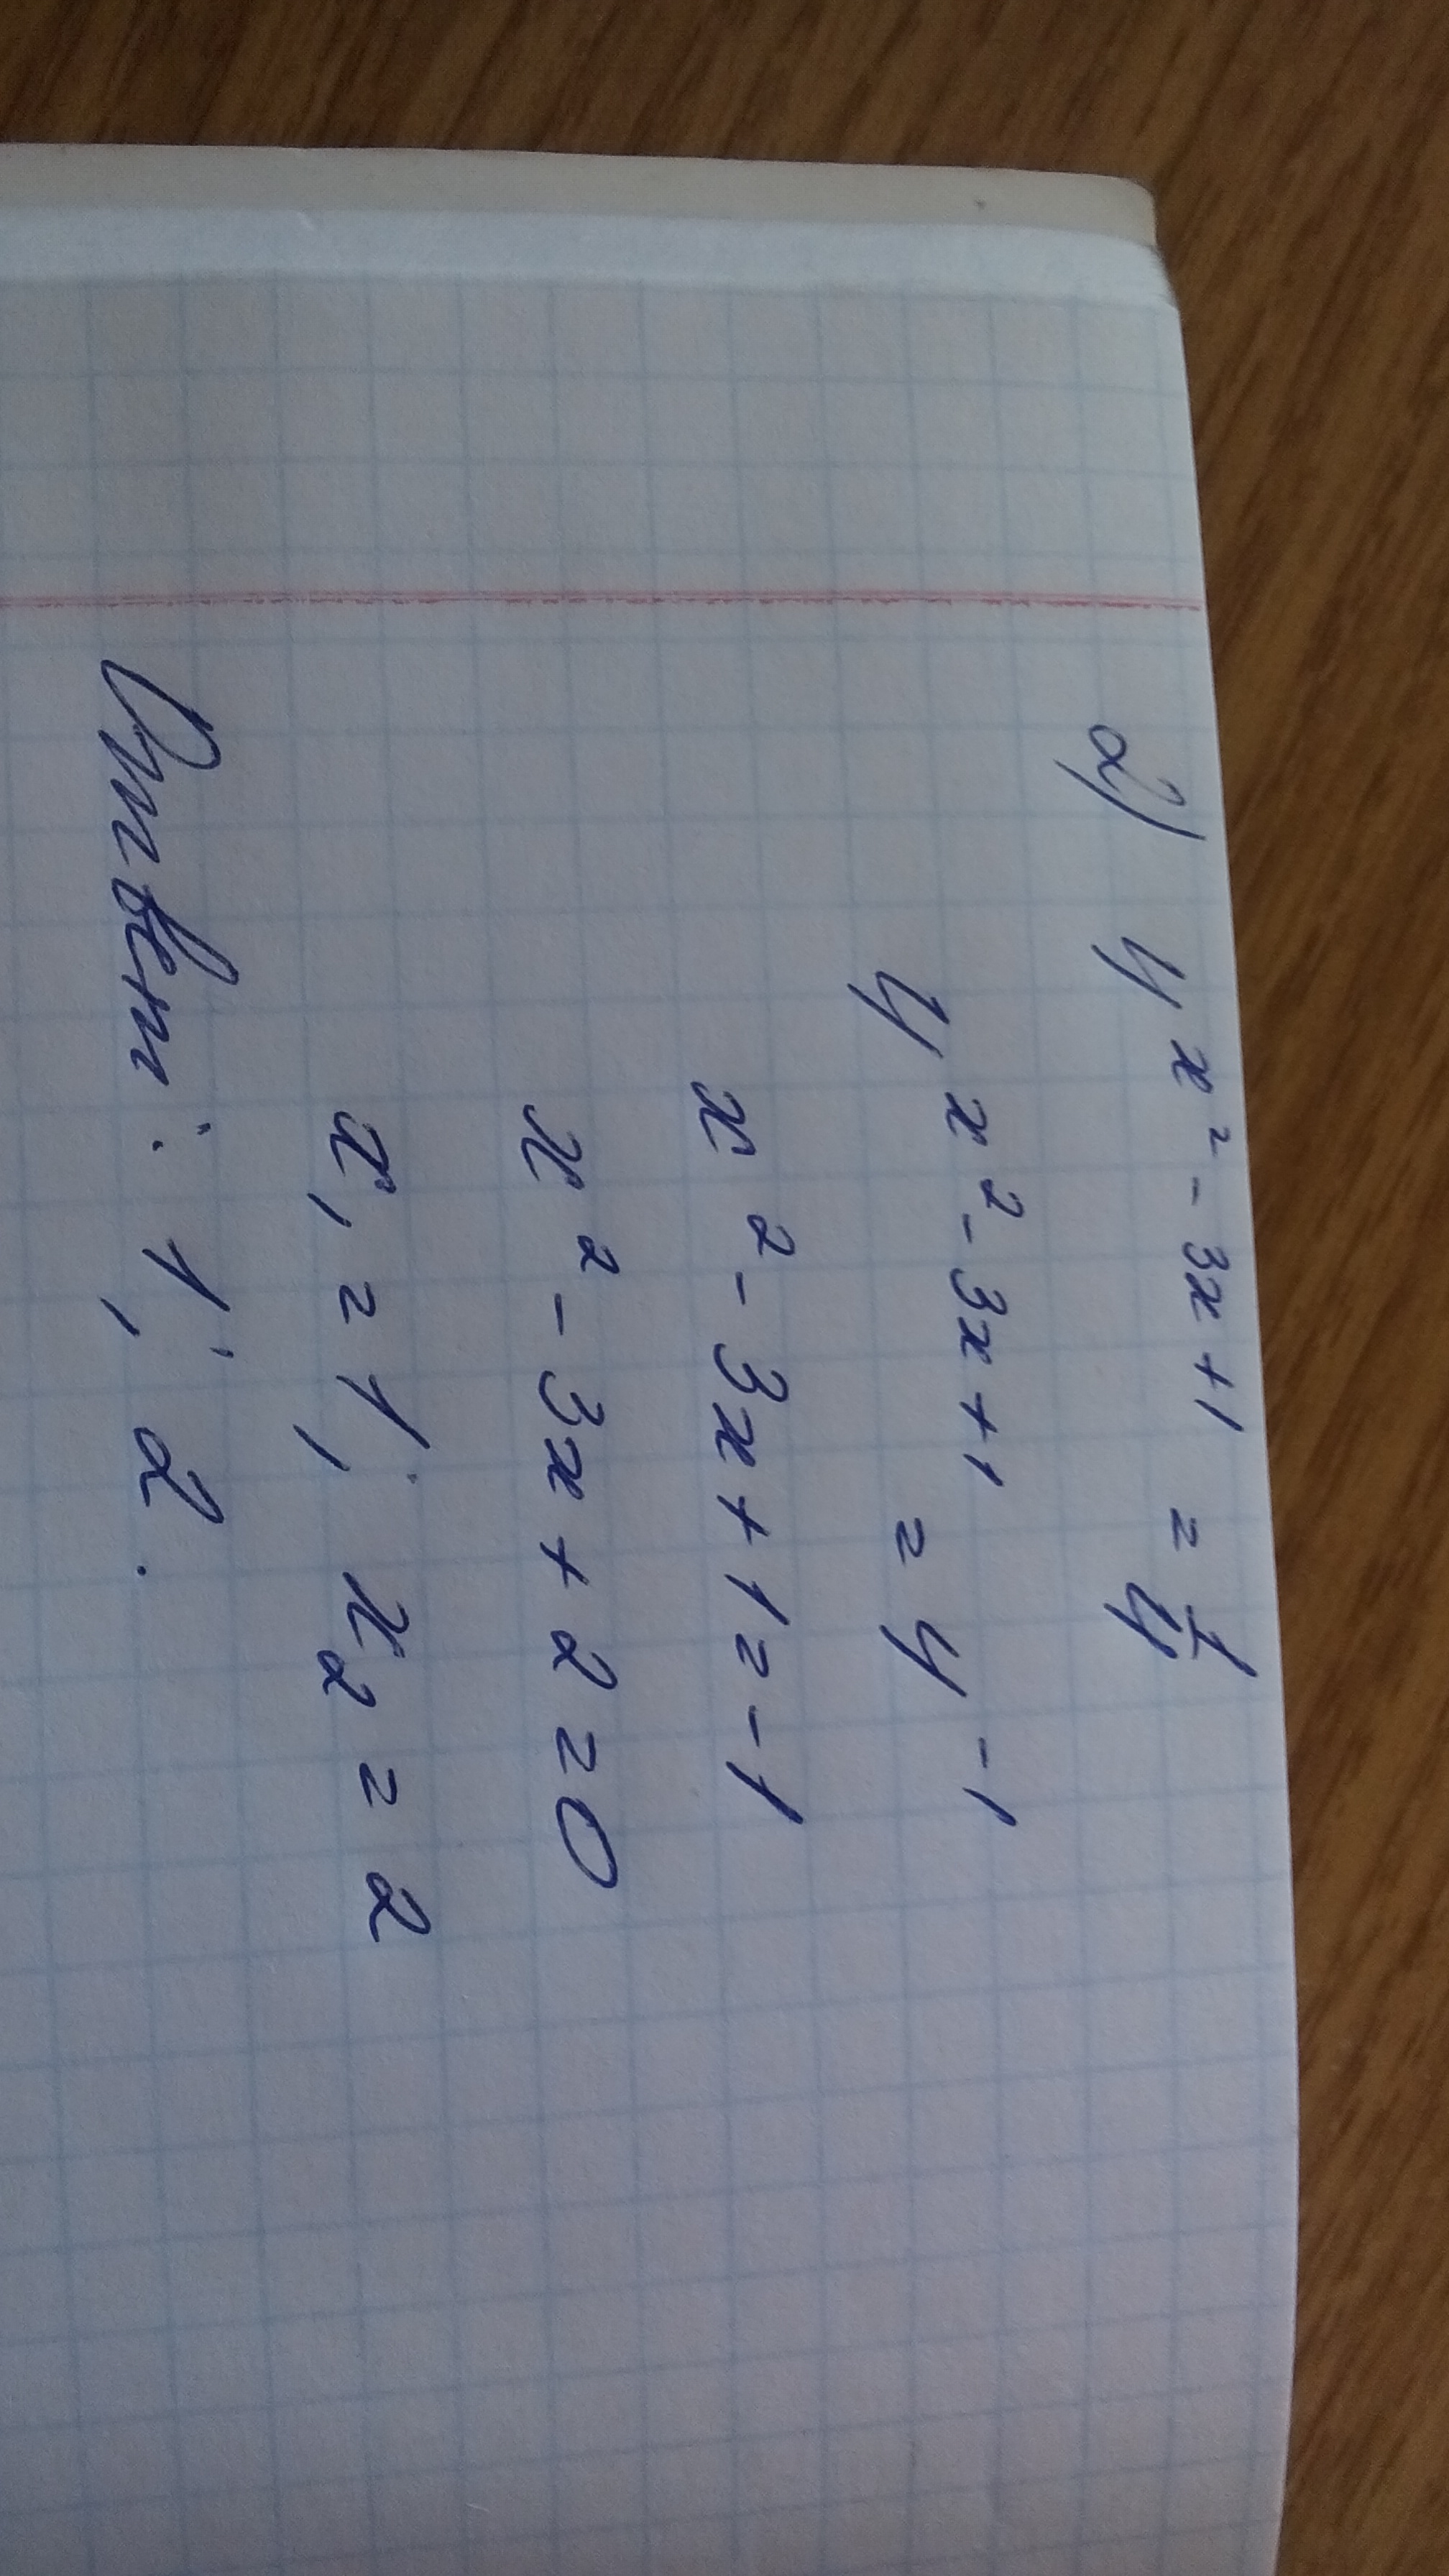 2) 4^(x²-3x+1) = 1/4
4^(x²-3x+1) = 4^(-1)
x²-3x+1=-1
x²-3x+2=0
x₁=1; x₂=2
Ответ: 1; 2.